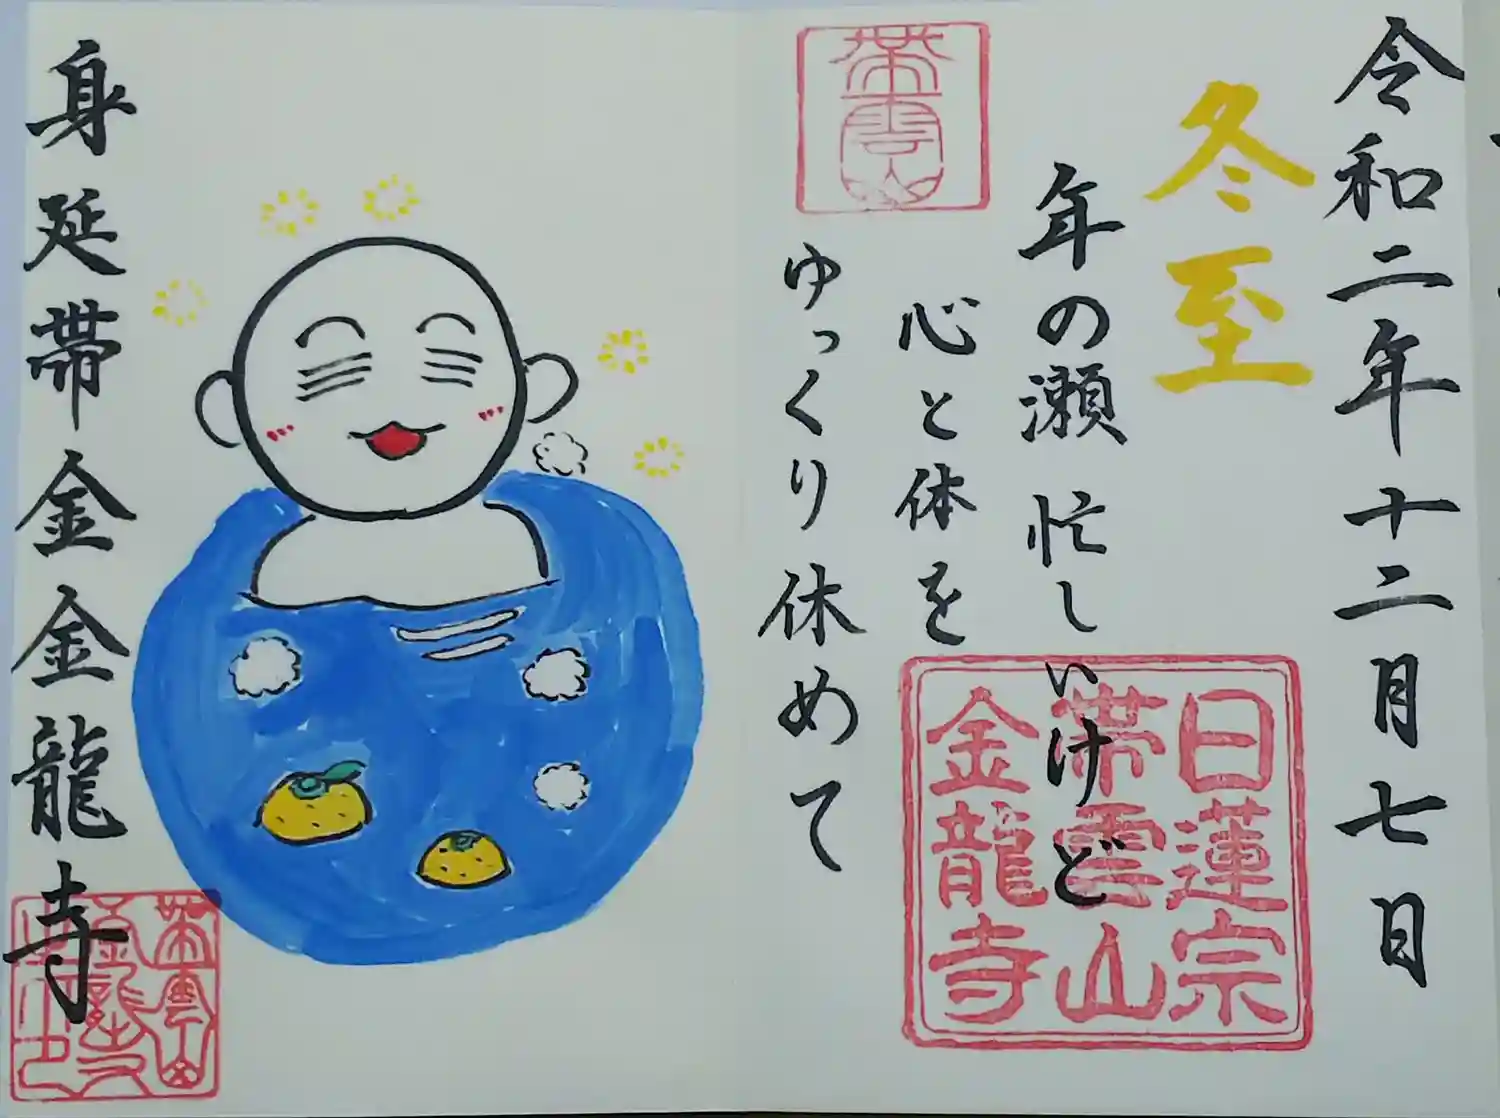 令和二年十二月七日
冬至
年の瀬 忙しいけど
心と体を
ゆっくり休めて
帯雲山
日蓮宗
帯雲山
金龍寺
身延帯金金龍寺
帯雲山
金龍寺